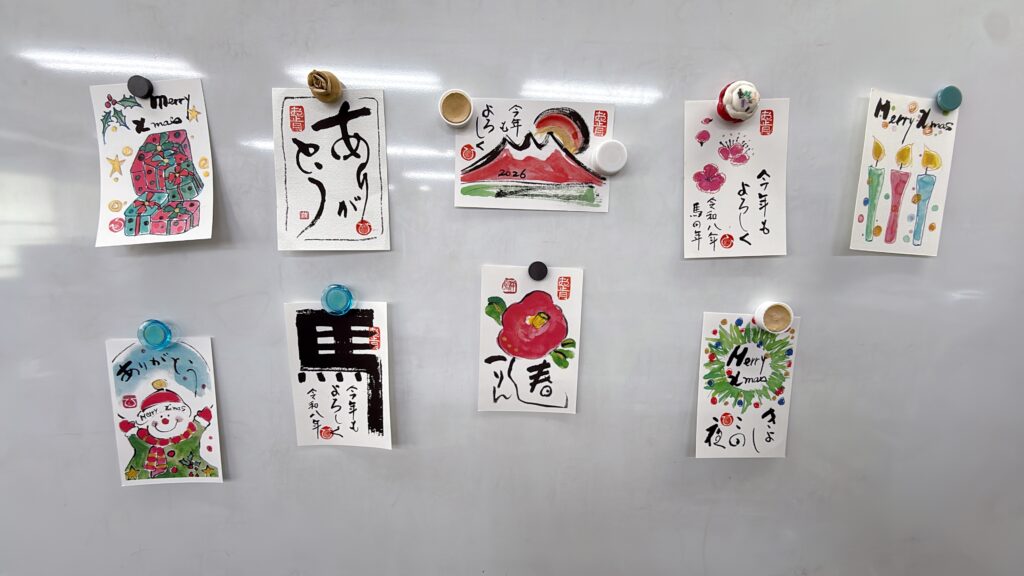 Merry
Xmas
ありが
とう
今年も
よろしく
2026
今年も
よろしく
令和八年
馬の年
Merry Xmas
ありがとう
Merry Xmas
馬
今年も
よろしく
令和八年
春
一りん
Merry
Xmas
きよし
この
夜